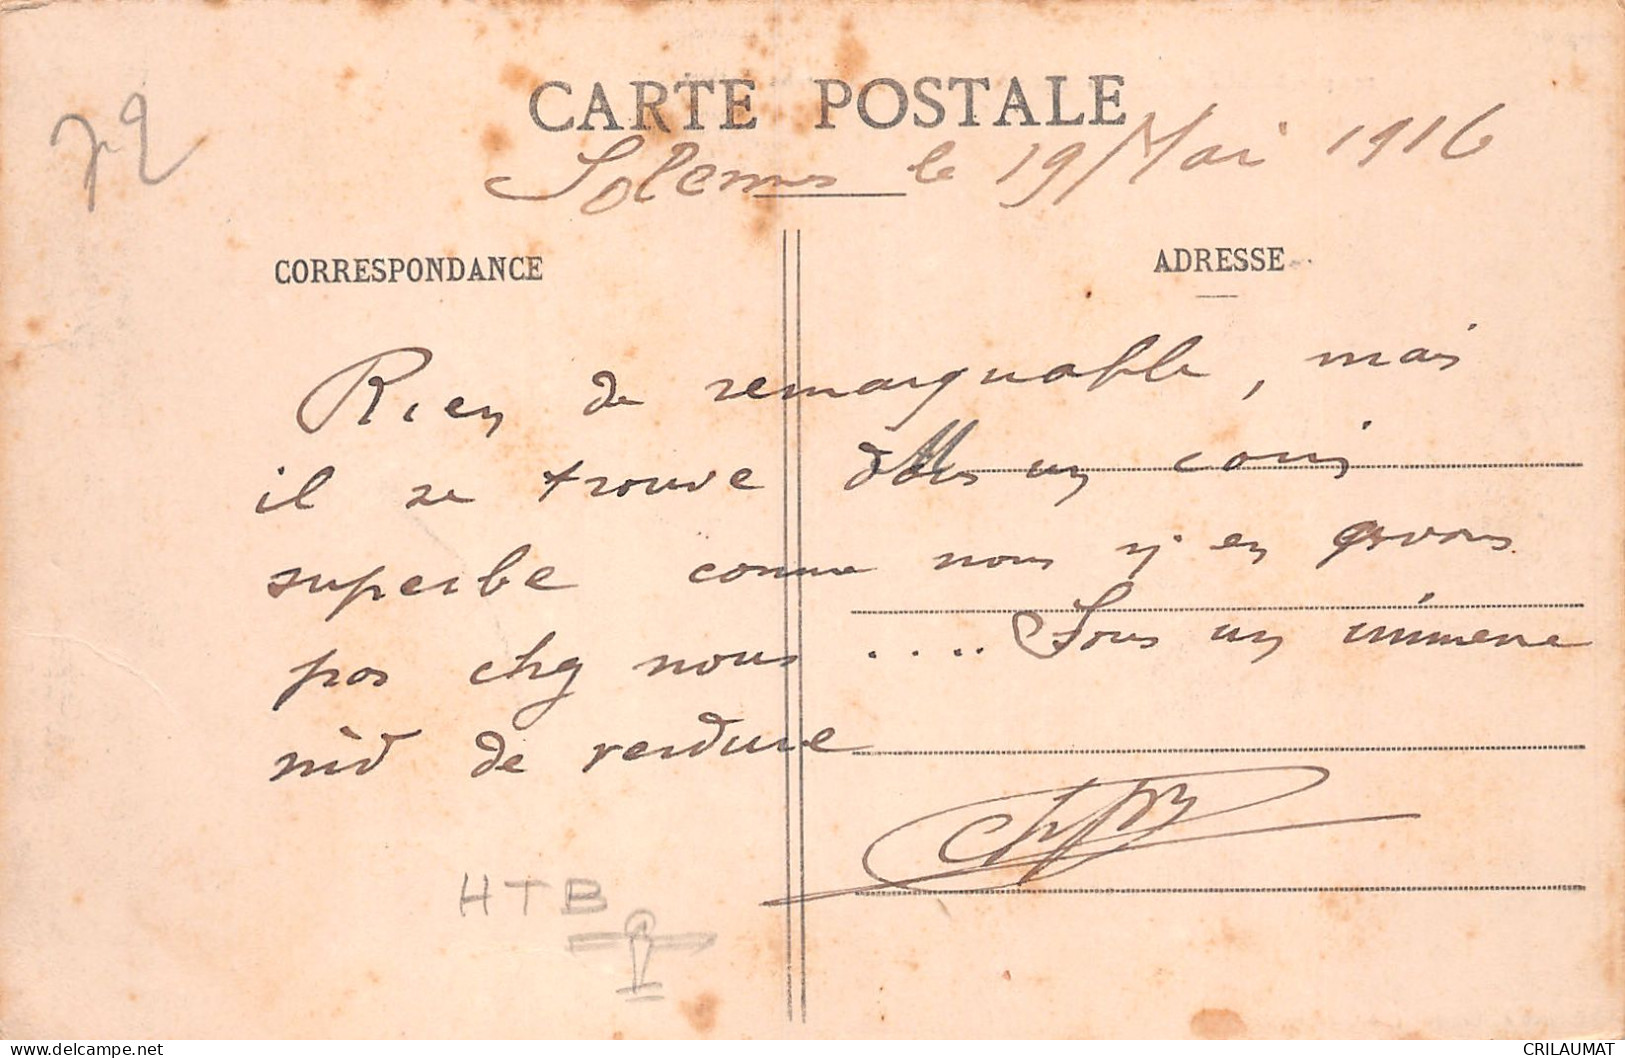 72
CARTE POSTALE
Solesmes le 19 Mai 1916
CORRESPONDANCE
ADRESSE
Rien de remarquable, mais
il se trouve dans un coin
superbe comme nous n'en avons
pas chez nous .... Sous un immense
nid de verdure
HTB
CRILAUMAT